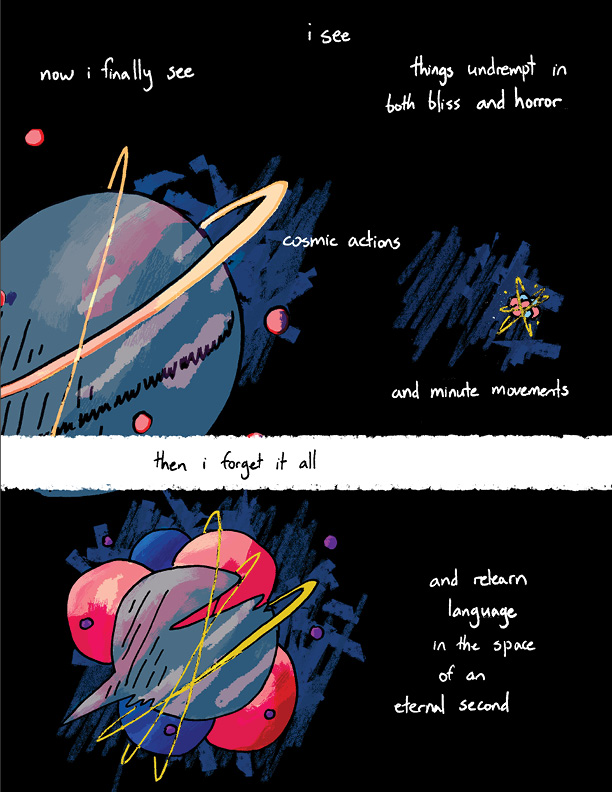 i see
now i finally see
things undrempt in
both bliss and horror
cosmic actions
and minute movements
then i forget it all
and relearn
language
in the space
of an
eternal second